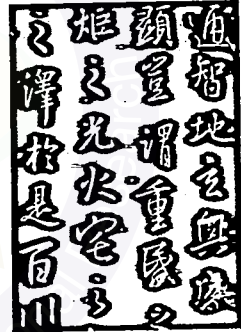 通智地玄奧感
顯豈謂重昬之
炬之光火宅之
之澤於是百川